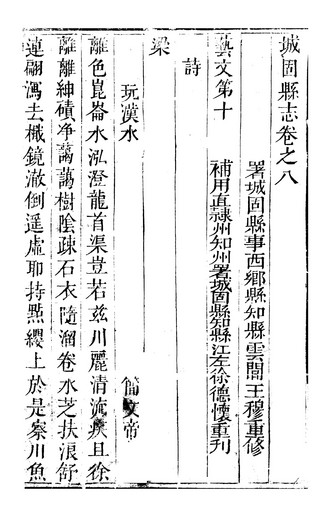 城固縣志卷之八
署城固縣事西鄉縣知縣雲間王穆重修
藝文第十
補用直隷州知州署城固縣知縣江左徐德懷重刋
詩
梁
玩漢水 簡文帝
離色崑崙水泓澄龍首渠豈若兹川麗清流疾且徐
離離紳磧净藹藹樹陰疎石衣隨溜卷水芝扶浪舒
連翩瀉去檝鏡澈倒遥虛聊持點纓上於是察川魚